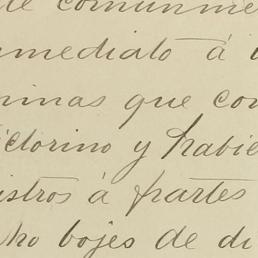 de comunme
nmediato á
minas que con
ictorino y habie
istros á partes
ho bojes de di